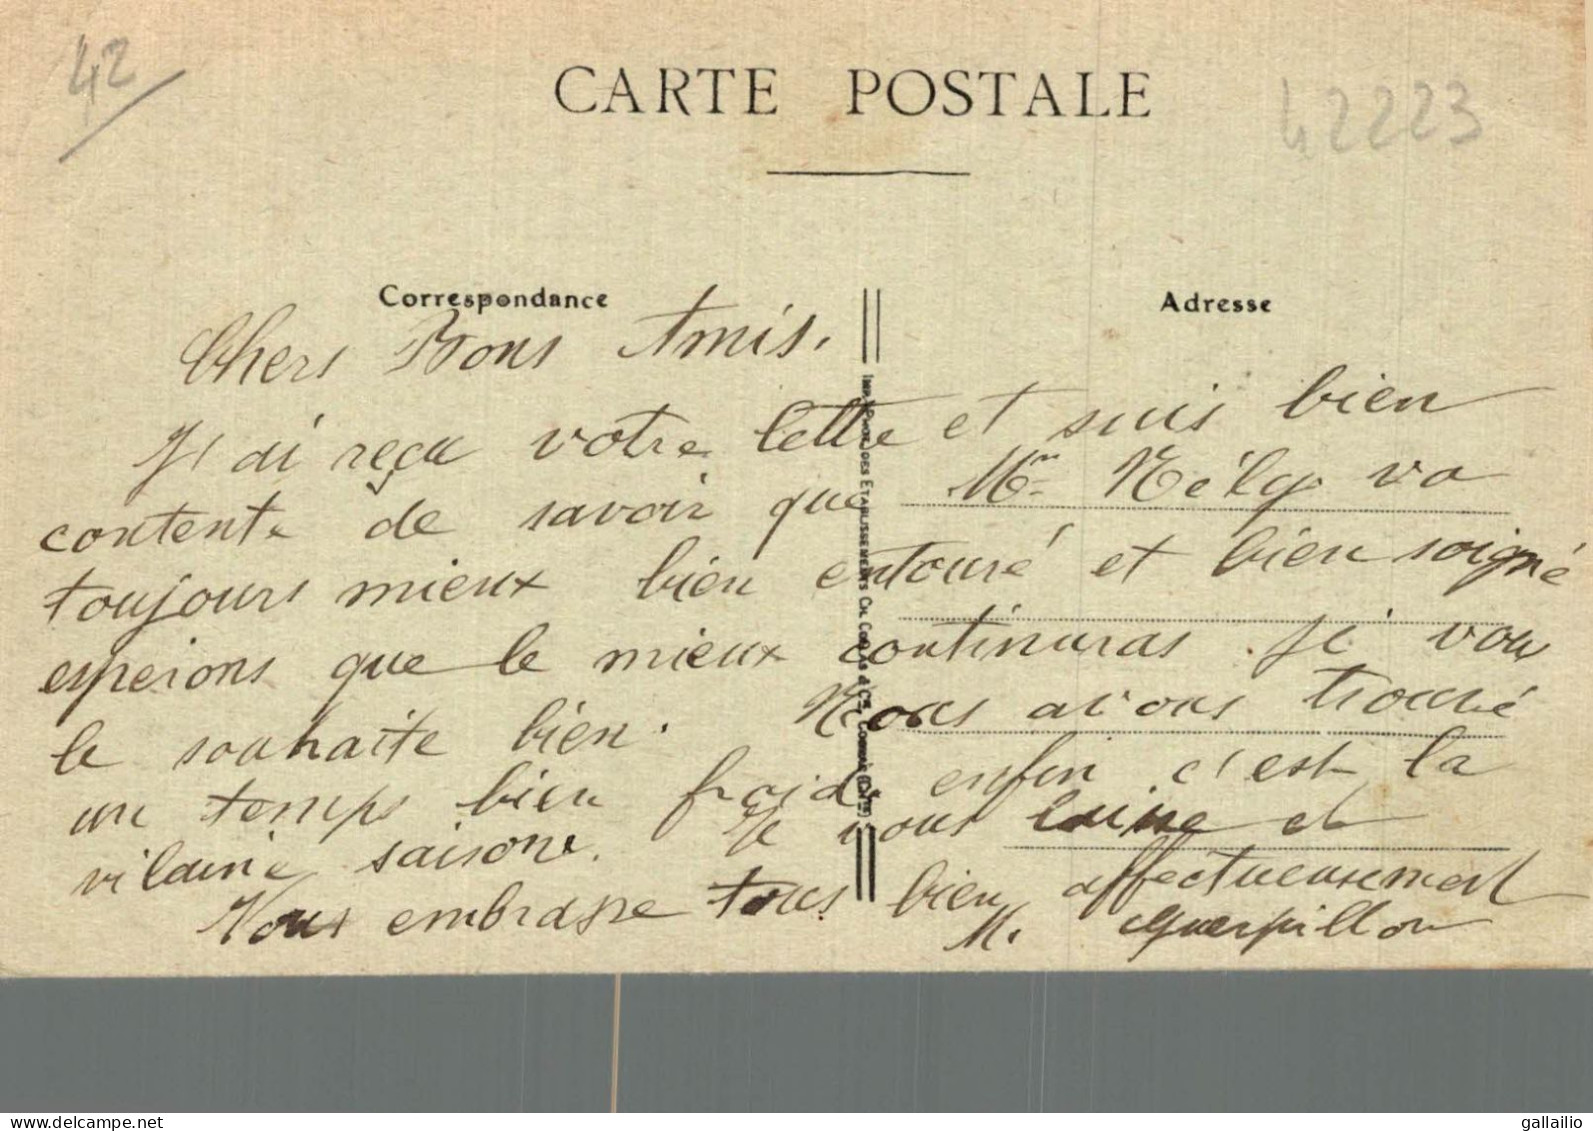 42
CARTE POSTALE
42223
Correspondance
Adresse
Chers Bons Amis.
J'ai reçu votre lettre et suis bien
contente de savoir que Mr va
toujours mieux bien entouré et bien soigné
esperons que le mieux continuras. Je vous
le souhaite bien. Nous avons trouvé
un temps bien froid, enfin c'est la
vilaine saisone. Je vous laisse et
Vous embrasse tous bien affectueusement
M. Guerpillon
delcampe.net
gallailio